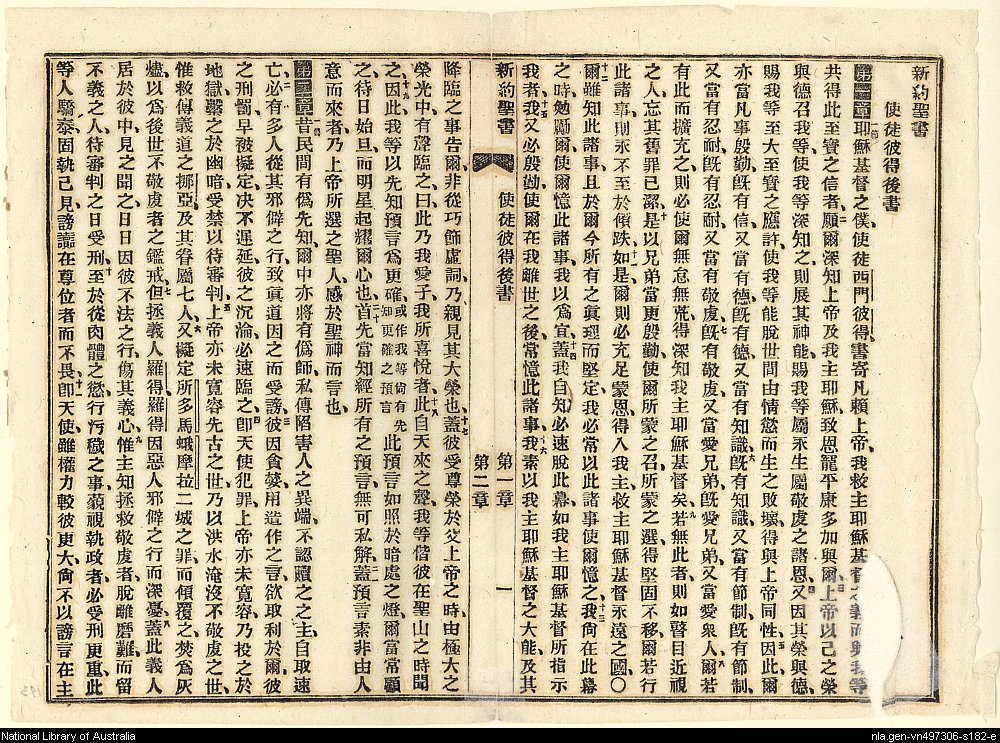 新約聖書
使徒彼得後書
第一章耶穌基督之僕使徒西門彼得書寄凡賴上帝我救主耶穌基督之義而與我等
共得此至寶之信者願爾深知上帝及我主耶穌致恩寵平康多加與爾上帝以己之榮
與德召我等使我等深知之則展其神能賜我等屬永生屬敬虔之諸恩又因其榮與德
賜我等至大至寶之應許使我等能脫世間由情慾而生之敗壞得與上帝同性因此爾
亦當凡事殷勤旣有信又當有德旣有德又當有知識旣有知識又當有節制旣有節制
又當有忍耐旣有忍耐又當有敬虔旣有敬虔又當愛兄弟旣愛兄弟又當愛衆人爾若
有此而擴充之則必使爾無怠無荒得深知我主耶穌基督矣若無此者則如瞽目近視
之人忘其舊罪已潔是以兄弟當更殷勤使爾所蒙之召所蒙之選得堅固不移爾若行
此諸事則永不至於傾跌如是爾則必充足蒙恩得入我主救主耶穌基督永遠之國〇
爾雖知此諸事且於爾今所有之眞理而堅定我必常以此諸事使爾憶之我尙在此幕
之時勉勵爾使爾憶此諸事我以爲宜蓋我自知必速脫此幕如我主耶穌基督所指示
我者我又必殷勤使爾在我離世之後常憶此諸事我素以我主耶穌基督之大能及其
新約聖書 使徒彼得後書 第一章 一
第二章
降臨之事告爾非從巧飾虛詞乃親見其大榮也蓋彼受尊榮於父上帝之時由極大之
榮光中有聲臨之曰此乃我愛子我所喜悅者此自天來之聲我等偕彼在聖山之時聞
之因此我等以先知預言爲更確或作我等尙有先知更確之預言此預言如照於暗處之燈爾當常顧
之待日始旦而明星起耀爾心也首先當知經所有之預言無可私解蓋預言素非由人
意而來者乃上帝所選之聖人感於聖神而言也
第二章昔民間有僞先知爾中亦將有僞師私傳陷害人之異端不認贖之之主自取速
亡必有多人從其邪僻之行致眞道因之而受謗彼因貪婪用造作之言欲取利於爾彼
之刑罰早被擬定决不遲延彼之沉淪必速臨之卽天使犯罪上帝亦未寬容乃投之於
地獄繫之於幽暗受禁以待審判上帝亦未寬容先古之世乃以洪水淹沒不敬虔之世
惟救傳義道之挪亞及其眷屬七人又擬定所多馬蛾摩拉二城之罪而傾覆之焚爲灰
燼以爲後世不敬虔者之鑑戒但拯義人羅得羅得因惡人邪僻之行而深憂蓋此義人
居於彼中見之聞之日日因彼不法之行傷其義心惟主知拯救敬虔者脫離磨難而留
不義之人待審判之日受刑至於從肉體之慾行污穢之事藐視執政者必受刑更重此
等人驕泰固執己見謗讟在尊位者而不畏卽天使雖權力較彼更大尙不以謗言在主
National Library of Australia
nla.gen-vn497306-s182-e